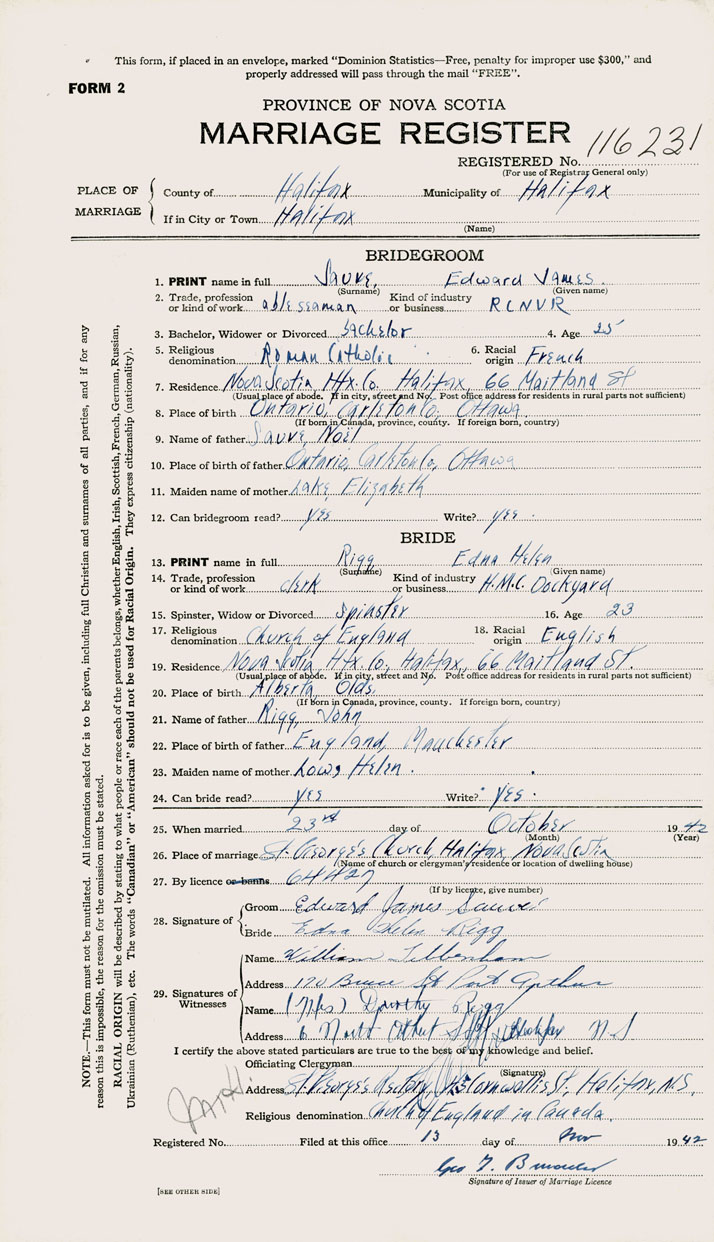 This form, if placed in an envelope, marked "Dominion Statistics—Free, penalty for improper use $300," and
properly addressed will pass through the mail "FREE".
FORM 2
PROVINCE OF NOVA SCOTIA
MARRIAGE REGISTER
116231
REGISTERED No.
(For use of Registrar General only)
PLACE OF MARRIAGE
County of Halifax Municipality of Halifax
If in City or Town Halifax
(Name)
BRIDEGROOM
1. PRINT name in full Sauve, Edward James.
(Surname) (Given name)
2. Trade, profession or kind of work able seaman Kind of industry or business RCNVR
3. Bachelor, Widower or Divorced bachelor 4. Age 25
5. Religious denomination Roman Catholic 6. Racial origin French
7. Residence Nova Scotia Hfx. Co. Halifax, 66 Maitland St
(Usual place of abode. If in city, street and No. Post office address for residents in rural parts not sufficient)
8. Place of birth Ontario, Carleton Co. Ottawa
(If born in Canada, province, county. If foreign born, country)
9. Name of father Sauve, Noël
10. Place of birth of father Ontario, Carleton Co, Ottawa
11. Maiden name of mother Lake, Elizabeth
12. Can bridegroom read? yes Write? yes.
BRIDE
13. PRINT name in full Rigg Edna Helen
(Surname) (Given name)
14. Trade, profession or kind of work clerk Kind of industry or business H.M.C. Dockyard
15. Spinster, Widow or Divorced Spinster 16. Age 23
17. Religious denomination Church of England 18. Racial origin English
19. Residence Nova Scotia, Hfx. Co, Halifax, 66 Maitland St.
(Usual place of abode. If in city, street and No. Post office address for residents in rural parts not sufficient)
20. Place of birth Alberta, Olds
(If born in Canada, province, county. If foreign born, country)
21. Name of father Rigg, John
22. Place of birth of father England, Manchester
23. Maiden name of mother Helen.
24. Can bride read? yes Write? yes.
25. When married 23rd day of October 1942
(Month) (Year)
26. Place of marriage St. George's Church, Halifax, Nova Scotia
(Name of church or clergyman's residence or location of dwelling house)
27. By licence or banns 64427
(If by licence, give number)
28. Signature of
Groom Edward James Sauve
Bride Edna Helen Rigg
29. Signatures of Witnesses
Name William
Address 170 St Port Arthur
Name (Mrs) Dorothy Rigg
Address 6 North St Halifax N S
I certify the above stated particulars are true to the best of my knowledge and belief.
Officiating Clergyman
(Signature)
Address St. George's Rectory, Cornwallis St, Halifax, N.S.
Religious denomination Church of England in Canada.
Registered No. Filed at this office 13 day of Nov 1942
Geo
Signature of Issuer of Marriage Licence
[SEE OTHER SIDE]
NOTE.—This form must not be mutilated. All information asked for is to be given, including full Christian and surnames of all parties, and if for any
reason this is impossible, the reason for the omission must be stated.
RACIAL ORIGIN will be described by stating to what people or race each of the parents belongs, whether English, Irish, Scottish, French, German, Russian,
Ukrainian (Ruthenian), etc. The words "Canadian" or "American" should not be used for Racial Origin. They express citizenship (nationality).